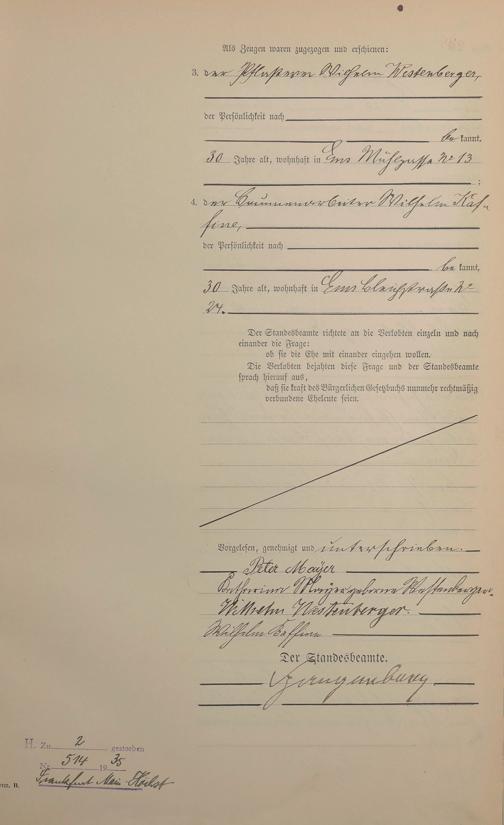 Als Zeugen waren zugezogen und erschienen:
3. der Pflasterer Wilhelm Westenberger,
der Persönlichkeit nach
be kannt,
30 Jahre alt, wohnhaft in Ems Mühlgasse No 13
;
4. der Brunnenarbeiter Wilhelm Kaf-
fine,
der Persönlichkeit nach
be kannt,
30 Jahre alt, wohnhaft in Ems Bleichstraße No
24.
Der Standesbeamte richtete an die Verlobten einzeln und nach
einander die Frage:
ob sie die Ehe mit einander eingehen wollen.
Die Verlobten bejahten diese Frage und der Standesbeamte
sprach hierauf aus,
daß sie kraft des Bürgerlichen Gesetzbuchs nunmehr rechtmäßig
verbundene Eheleute seien.
Vorgelesen, genehmigt und unterschrieben.
Peter Mayer
Mayer geborene Westenberger.
Wilhelm Westenberger.
Wilhelm Kaffine
Der Standesbeamte.
H. Zu 2 gestorben
Nr. 514 1935
Frankfurt Main-Höchst
B.